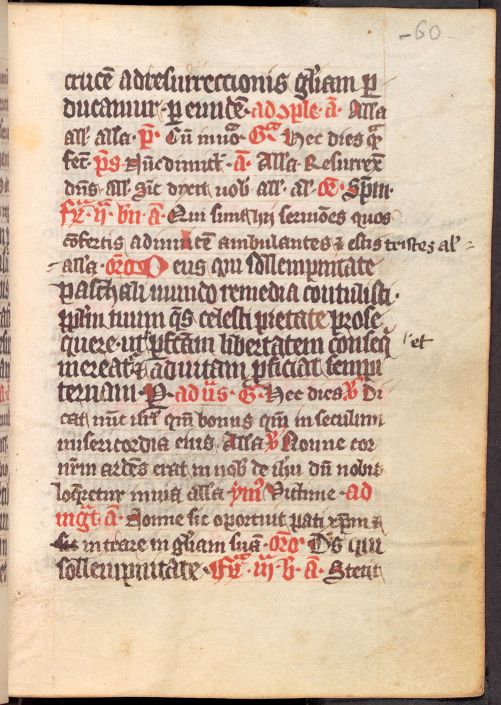 60
crucē ad resurrectionis gl̄iam p̄
ducamur · p̄ eundē · ad ɔple · a̅ · Alla
all' alla · p̄ · Cū inuo · G̅ᵃ hec dies q̄
fet̄ · p̄s Nūc dimict̄ · a̅ · Alla Resurrex̄
dn̄s all' sic̄ dixit uob̄ all' al' · Or̄ · Sp̄m
fr̄ · ij · bn̄ · a̅ · Qui sunt hij sermōes quos
cōfertis adinuicē ambulantes ⁊ estis tristes al'
alla · Or̄o Deus qui sollempnitate
paschali mundo remedia contulisti ·
pp̄lm tuum q̄s celesti pietate prose
quere · ut ⁊ p̄fectam libertatem conseq̄ et
mereat̄ ⁊ ad uitam p̄ficiat sempi
ternam · P̄ · ad ūs · G · Hec dies V̄ Di
cat nūc isrl' qm̄ bonus qm̄ in seculum
misericordia eius Alla V̄ Nonne cor
nr̄m ardēs erat in nob̄ de ihū dū nobis
loq̄retur in uia alla ym̄s Victime · ad
mḡt · a̅ · Nonne sic oportuit pati xp̄m ⁊
sic intrare in gl̄iam suā · Or̄o · Ds̄ qui
sollempnitate · fr̄ · iij · b̄ · a̅ · Stetit